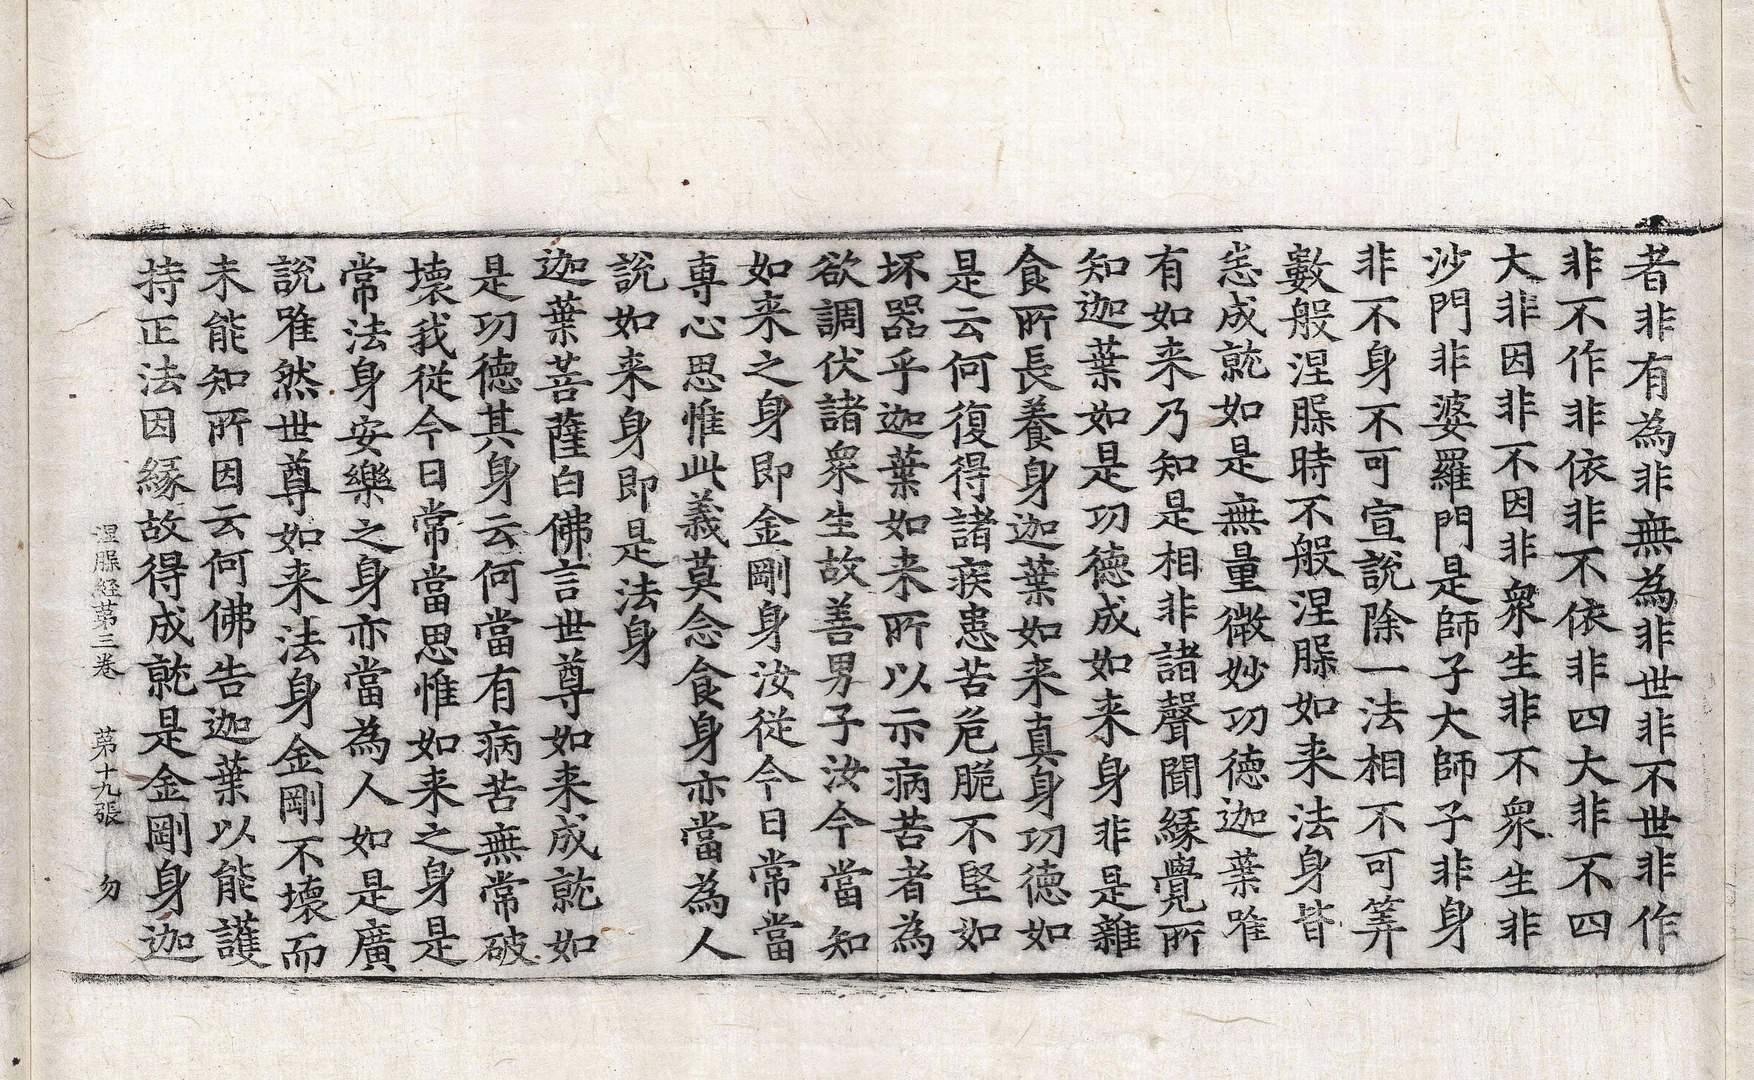 者非有為非無為非世非不世非作
非不作非依非不依非四大非不四
大非因非不因非衆生非不衆生非
沙門非婆羅門是師子大師子非身
非不身不可宣說除一法相不可筭
數般涅槃時不般涅槃如来法身皆
悉成就如是無量微妙功德迦葉唯
有如来乃知是相非諸聲聞緣覺所
知迦葉如是功德成如来身非是雜
食所長養身迦葉如来真身功德如
是云何復得諸疾患苦危脆不堅如
坏器乎迦葉如来所以示病苦者為
欲調伏諸衆生故善男子汝今當知
如来之身即金剛身汝從今日常當
專心思惟此義莫念食身亦當為人
說如来身即是法身
迦葉菩薩白佛言世尊如来成就如
是功德其身云何當有病苦無常破
壞我從今日常當思惟如来之身是
常法身安樂之身亦當為人如是廣
說唯然世尊如来法身金剛不壞而
未能知所因云何佛告迦葉以能護
持正法因緣故得成就是金剛身迦
涅槃経苐三卷 苐十九張 勿